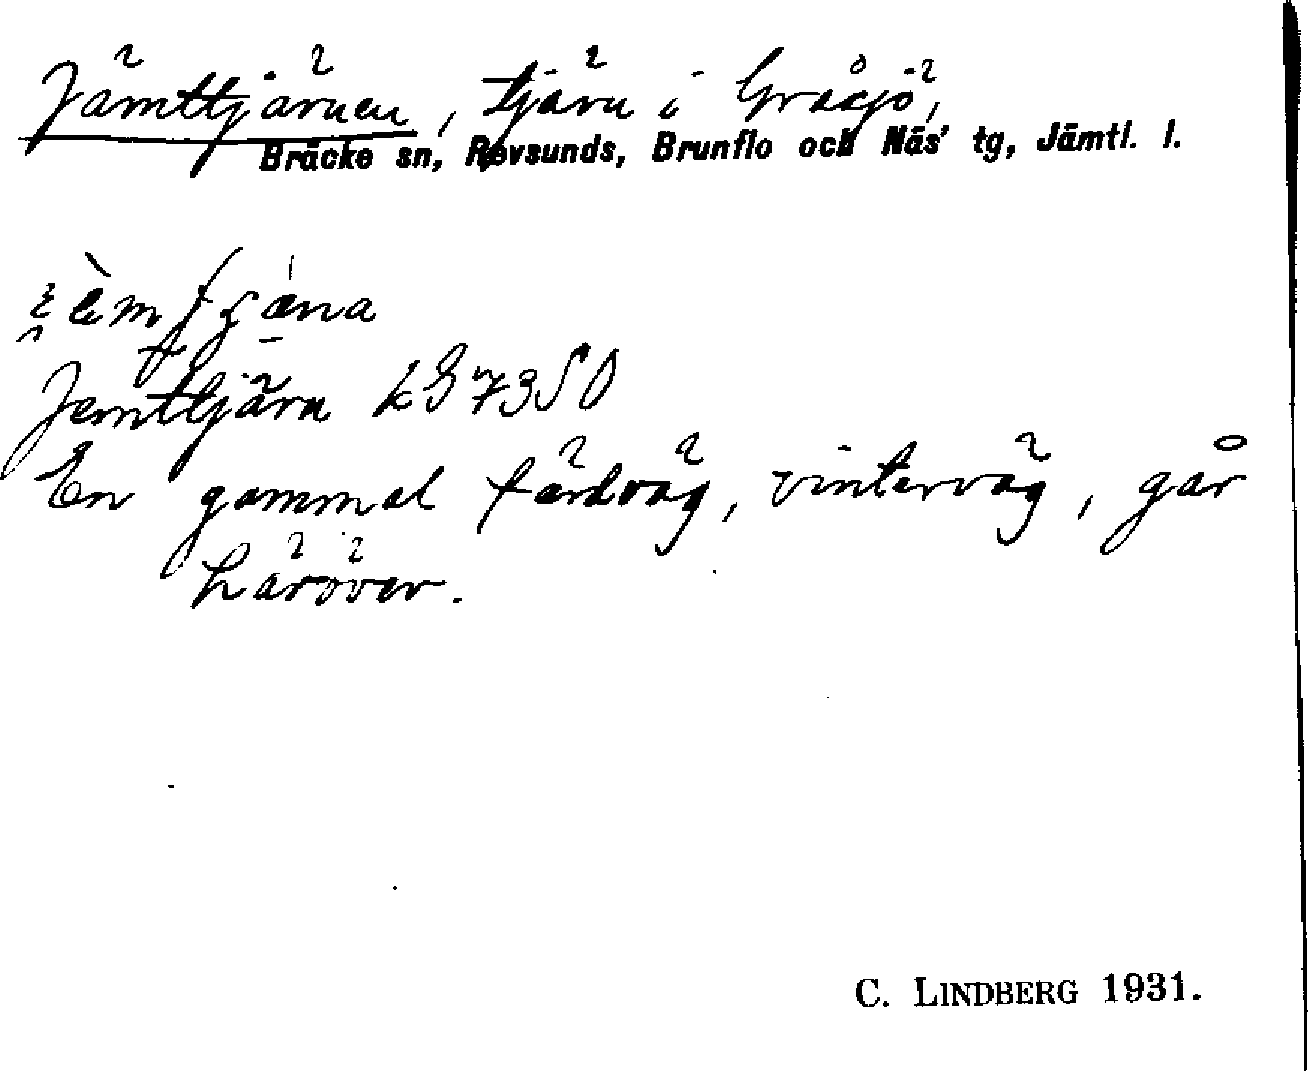 Jämttjärnen, tjärn i Gråsjö,
Bräcke sn, Revsunds, Brunflo och Näs' tg, Jämtl. l.
Jemttjärn LS 73 SO
En gammal färdväg, vinterväg, går
häröver.
C. LINDBERG 1931.